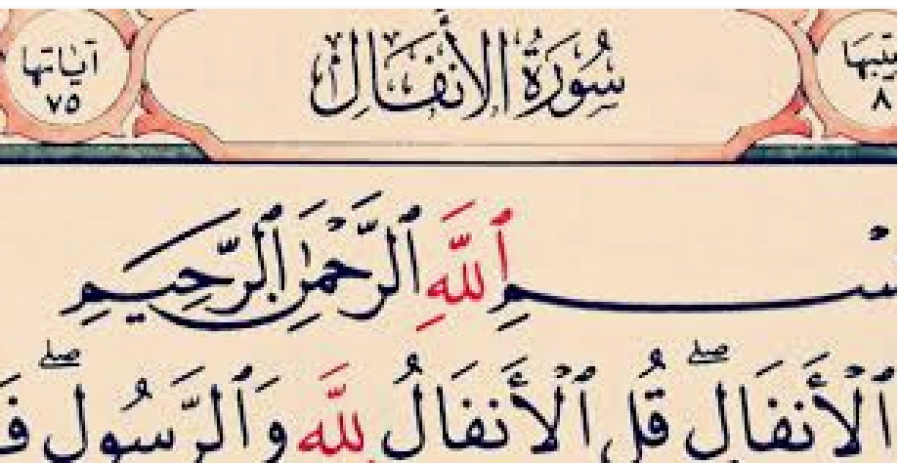 آياتها
٧٥
سُورَةُ الأَنفَالِ
٨
ٱللَّهِ ٱلرَّحْمَٰنِ ٱلرَّحِيمِ
ٱلْأَنفَالِ ۖ قُلِ ٱلْأَنفَالُ لِلَّهِ وَٱلرَّسُولِ ۖ